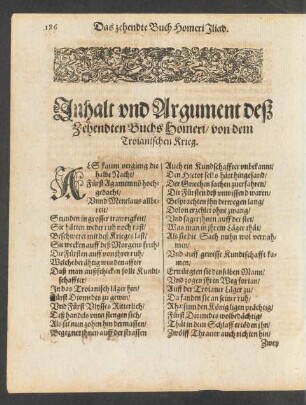 186 Das zehendte Buch Homeri Iliad.
Inhalt vnd Argument deß
Zehendten Buchs Homeri / von dem
Troianischen Krieg.
ALS kaum vergieng die
halbe Nacht /
Fürst Agamemnō hoch-
gedacht /
Vnnd Menelaus allbe-
reit /
Stunden in grosser trawrigkeit /
Sie hätten weder ruh noch rast /
Beschweret mit deß Kriegs last /
Sie wecken auff deß Morgens früh /
Die Fürsten auff von jhrer ruh /
Welche berähtig wurden
Daß man außschicken sollt Kundt-
schaffter /
In das Troianisch läger hin /
Fürst Diomedes zu gewin /
Vnd Fürst Vlysses Ritterlich /
Deß handels vnterfiengen sich /
Als sie nun gohen hin dermassen /
Begegnet jhnen auff der strassen /
Auch ein Kundschaffter vnbekannt /
Den Hector selbs hätt hingesandt /
Der Griechen sachen zuerfahren /
Die Fürsten deß vnwissend waren /
Besprachen jhn derwegen lang /
Dolon erzehlet ohne zwang /
Vnd saget jhnen auff der stett /
Was man in jhrem Läger thät /
Als sie die Sach nuhn wol vernah-
men /
Vnd auff gewisse Kundschafft ka-
men /
Erwürgten sie denselben Mann /
Vnd zogen jhren Weg fortan /
Auff der Troianer Läger zu /
Da fanden sie an seiner ruh /
Rhesum den König ligen prächtig /
Fürst Diomedes wolbedächtig /
Thät in dem Schlaff ertödten jhn /
Zwölff Thracier auch richten hin /
Zwey